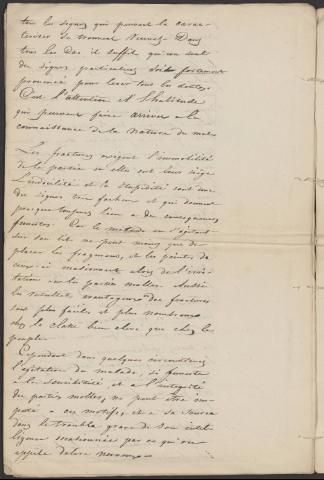 tous les signes qui peuvent le carac-
teriser se trouvent reunis. Dans
tous les cas il suffit qu'un seul
de signes particuliers soit fortement
prononcé pour lever tous les doutes.
C'est l'attention et l'habitude
qui peuvent faire arriver a la
connaissance de la nature du mal.
Les fractures exigent l'immobilité
de la partie ou elles ont leur siège
L'indocilité et la stupidité sont une
des signes tres facheux et qui donnent
presque toujours lieu a des consequences
funestes. Car le malade en s'agitant
sur son lit ne peut moins que de
placer les fragmens, et les pointes de
ceux-ci occasionnent alors de l'irri-
tation sur les parties molles. Aussi
les resultats avantageux des fractures
sont plus faciles et plus nombreux
chez la classe bien elevé que chez les
peuple
Cependant dans quelques circonstances
l'agitation du malade, si funeste
à la sensibilité, et a l'integrité
des parties molles, ne peut être im-
puté a ces motifs, et a sa source
dans le trouble grave de son intel-
ligence occasionnée par ce qu'on
appelle delire nerveux